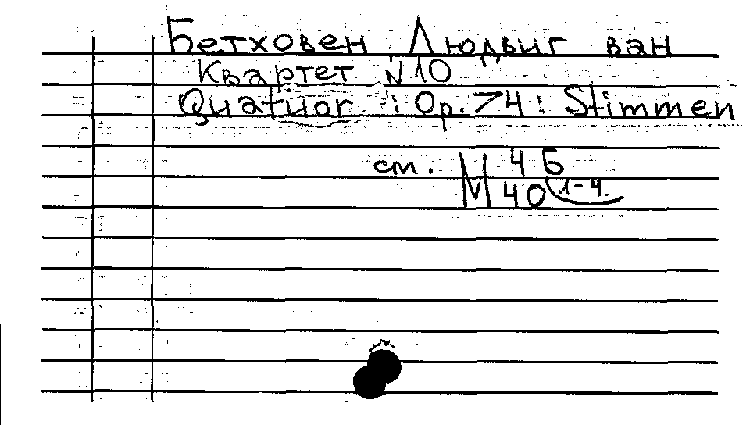 Бетховен Людвиг ван
Квартет N 10
Quatuor : Op. 74 : Stimmen
см. М 4 Б
40 1-4